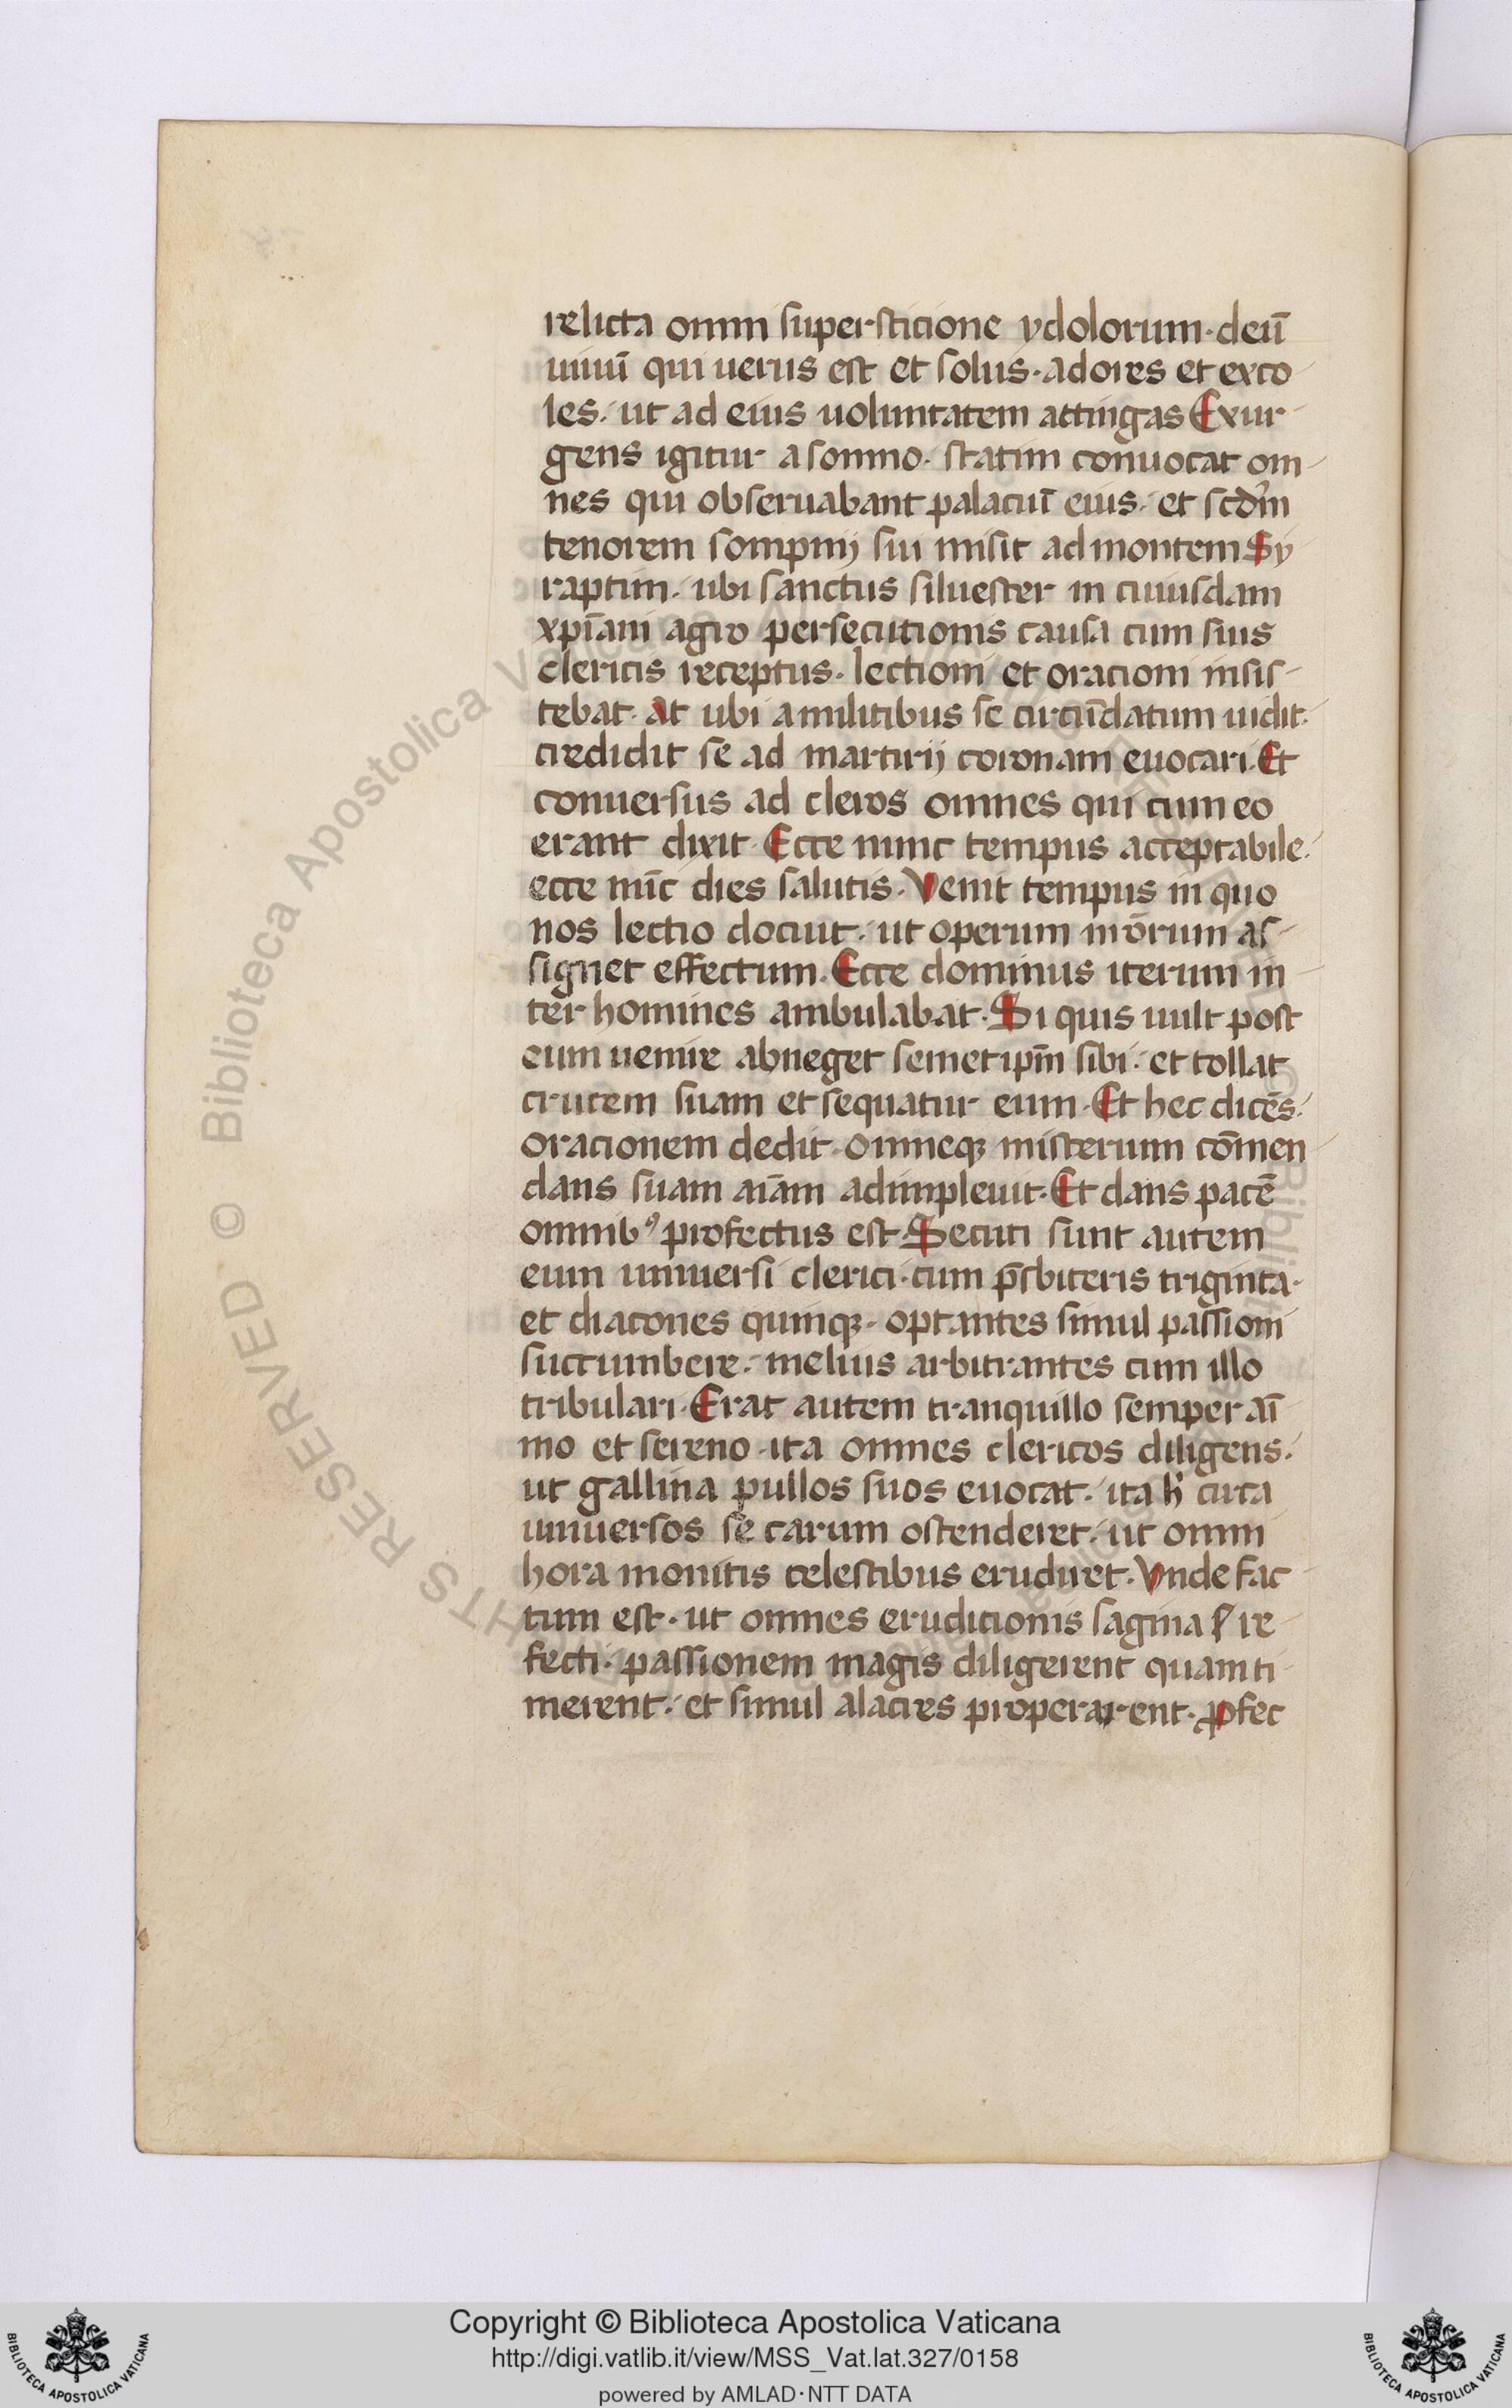 relicta omni supersticione ydolorum· deū
uiuū qui uerus est et solus· adores et exco
les· ut ad eius uoluntatem attingas Exur
gens igitur a somno· statim conuocat om
nes qui obseruabant palaciū eius· et scdm̄
tenorem sompnij sui misit ad montem Sy
raptim· ubi sanctus siluester in cuiusdam
xp̄iani agro persecutionis causa cum suis
clericis receptus· lectioni et oracioni insis
tebat· At ubi a militibus se circūdatum uidit·
credidit se ad martirij coronam euocari· Et
conuersus ad cleros omnes qui cum eo
erant dixit· Ecce nunc tempus acceptabile·
ecce nūc dies salutis· Venit tempus in quo
nos lectio docuit· ut operum nr̄orum as
signet effectum· Ecce dominus iterum in
ter homines ambulabat· Si quis uult post
eum uenire abneget semetipm̄ sibi· et tollat
crucem suam et sequatur eum· Et hec dicēs·
oracionem dedit· omneqꝫ misterium cōmen
dans suam aīam adimpleuit· Et dans pacē
omnibꝰ profectus est· Secuti sunt autem
eum uniuersi clerici· cum pr̄sbiteris triginta·
et diacones quinqꝫ· optantes simul passioni
succumbere· melius arbitrantes cum illo
tribulari· Erat autem tranquillo semper aī
mo et sereno· ita omnes clericos diligens·
ut gallina pullos suos euocat· ita h̄ circa
uniuersos se carum ostenderet· ut omni
hora monitis celestibus erudiret· Vnde fac
tum est· ut omnes eruditionis sagina re
fecti· passionem magis diligerent quam ti
merent· et simul alacres properarent· Ꝓfec
Copyright © Biblioteca Apostolica Vaticana
http://digi.vatlib.it/view/MSS_Vat.lat.327/0158
powered by AMLAD·NTT DATA
BIBLIOTECA APOSTOLICA VATICANA
BIBLIOTECA APOSTOLICA VATICANA